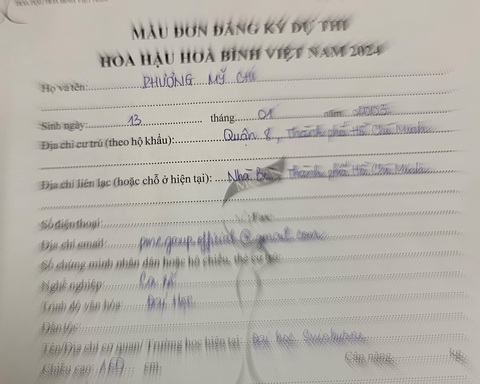 MẪU ĐƠN ĐĂNG KÝ DỰ THI
HOA HẬU HOÀ BÌNH VIỆT NAM 2024
Họ và tên: PHƯƠNG MỸ CHI
Sinh ngày: 13 tháng 01 năm 2003
Địa chỉ cư trú (theo hộ khẩu): Quận 8, Thành phố Hồ Chí Minh
Địa chỉ liên lạc (hoặc chỗ ở hiện tại): Nhà Bè, Thành phố Hồ Chí Minh
Số điện thoại: Fax:
Địa chỉ email: pmc.group.official@gmail.com
Số chứng minh nhân dân hoặc hộ chiếu, thẻ cư trú:
Nghề nghiệp: Ca sĩ
Trình độ văn hóa: Đại học
Dân tộc:
Tên/Địa chỉ cơ quan/ Trường học hiện tại: Đại học Swinburne
Chiều cao: 160 cm Cân nặng: kg